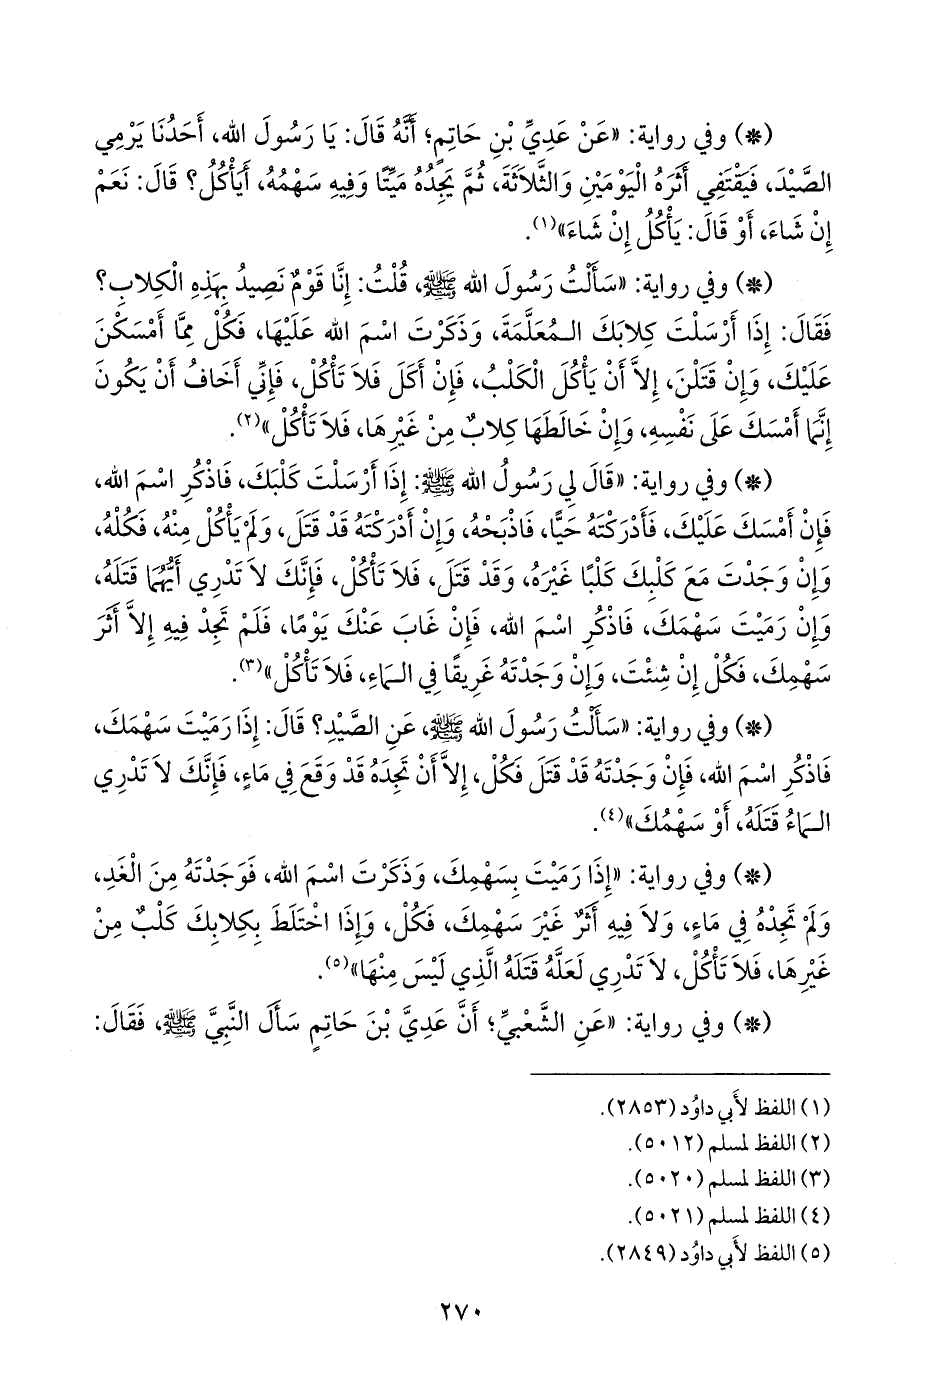 (*) وفي رواية: «عَنْ عَدِيِّ بْنِ حَاتِمٍ؛ أَنَّهُ قَالَ: يَا رَسُولَ الله، أَحَدُنَا يَرْمِي
الصَّيْدَ، فَيَقْتَفِي أَثَرَهُ الْيَوْمَيْنِ وَالثَّلاَثَةَ، ثُمَّ يَجِدُهُ مَيِّتًا وَفِيهِ سَهْمُهُ، أَيَأْكُلُ؟ قَالَ: نَعَمْ
إِنْ شَاءَ، أَوْ قَالَ: يَأْكُلُ إِنْ شَاءَ»(١).
(*) وفي رواية: «سَأَلْتُ رَسُولَ الله ﷺ، قُلْتُ: إِنَّا قَوْمٌ نَصِيدُ بِهَذِهِ الْكِلاَبِ؟
فَقَالَ: إِذَا أَرْسَلْتَ كِلاَبَكَ الـمُعَلَّمَةَ، وَذَكَرْتَ اسْمَ الله عَلَيْهَا، فَكُلْ مِمَّا أَمْسَكْنَ
عَلَيْكَ، وَإِنْ قَتَلْنَ، إِلاَّ أَنْ يَأْكُلَ الْكَلْبُ، فَإِنْ أَكَلَ فَلاَ تَأْكُلْ، فَإِنِّي أَخَافُ أَنْ يَكُونَ
إِنَّمَا أَمْسَكَ عَلَى نَفْسِهِ، وَإِنْ خَالَطَهَا كِلاَبٌ مِنْ غَيْرِهَا، فَلاَ تَأْكُلْ»(٢).
(*) وفي رواية: «قَالَ لِي رَسُولُ الله ﷺ: إِذَا أَرْسَلْتَ كَلْبَكَ، فَاذْكُرِ اسْمَ الله،
فَإِنْ أَمْسَكَ عَلَيْكَ، فَأَدْرَكْتَهُ حَيًّا، فَاذْبَحْهُ، وَإِنْ أَدْرَكْتَهُ قَدْ قَتَلَ، وَلَمْ يَأْكُلْ مِنْهُ، فَكُلْهُ،
وَإِنْ وَجَدْتَ مَعَ كَلْبِكَ كَلْبًا غَيْرَهُ، وَقَدْ قَتَلَ، فَلاَ تَأْكُلْ، فَإِنَّكَ لاَ تَدْرِي أَيُّهُمَا قَتَلَهُ،
وَإِنْ رَمَيْتَ سَهْمَكَ، فَاذْكُرِ اسْمَ الله، فَإِنْ غَابَ عَنْكَ يَوْمًا، فَلَمْ تَجِدْ فِيهِ إِلاَّ أَثَرَ
سَهْمِكَ، فَكُلْ إِنْ شِئْتَ، وَإِنْ وَجَدْتَهُ غَرِيقًا فِي الـمَاءِ، فَلاَ تَأْكُلْ»(٣).
(*) وفي رواية: «سَأَلْتُ رَسُولَ الله ﷺ، عَنِ الصَّيْدِ؟ قَالَ: إِذَا رَمَيْتَ سَهْمَكَ،
فَاذْكُرِ اسْمَ الله، فَإِنْ وَجَدْتَهُ قَدْ قَتَلَ فَكُلْ، إِلاَّ أَنْ تَجِدَهُ قَدْ وَقَعَ فِي مَاءٍ، فَإِنَّكَ لاَ تَدْرِي
الـمَاءُ قَتَلَهُ، أَوْ سَهْمُكَ»(٤).
(*) وفي رواية: «إِذَا رَمَيْتَ بِسَهْمِكَ، وَذَكَرْتَ اسْمَ الله، فَوَجَدْتَهُ مِنَ الْغَدِ،
وَلَمْ تَجِدْهُ فِي مَاءٍ، وَلاَ فِيهِ أَثَرٌ غَيْرَ سَهْمِكَ، فَكُلْ، وَإِذَا اخْتَلَطَ بِكِلاَبِكَ كَلْبٌ مِنْ
غَيْرِهَا، فَلاَ تَأْكُلْ، لاَ تَدْرِي لَعَلَّهُ قَتَلَهُ الَّذِي لَيْسَ مِنْهَا»(٥).
(*) وفي رواية: «عَنِ الشَّعْبِيِّ؛ أَنَّ عَدِيَّ بْنَ حَاتِمٍ سَأَلَ النَّبِيَّ ﷺ، فَقَالَ:
(١) اللفظ لأَبي داوُد (٢٨٥٣).
(٢) اللفظ لمسلم (٥٠١٢).
(٣) اللفظ لمسلم (٥٠٢٠).
(٤) اللفظ لمسلم (٥٠٢١).
(٥) اللفظ لأَبي داوُد (٢٨٤٩).
٢٧٠